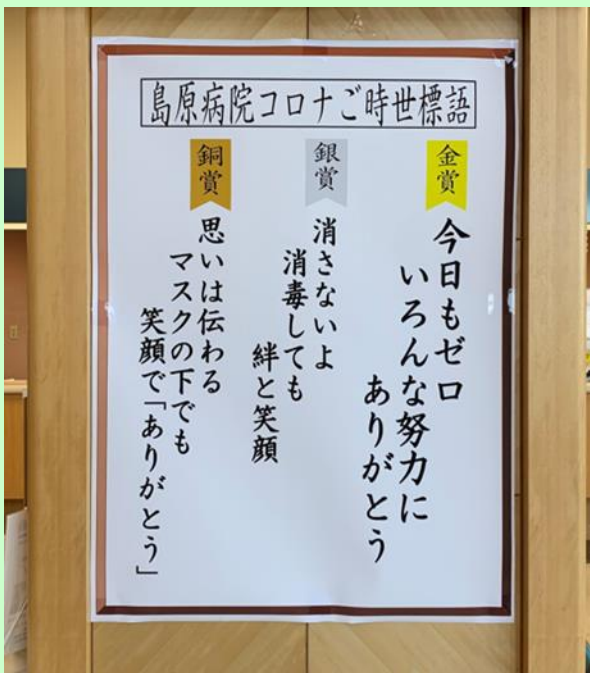 島原病院コロナご時世標語
金賞
今日もゼロ
いろんな努力に
ありがとう
銀賞
消さないよ
消毒しても
絆と笑顔
銅賞
思いは伝わる
マスクの下でも
笑顔で「ありがとう」